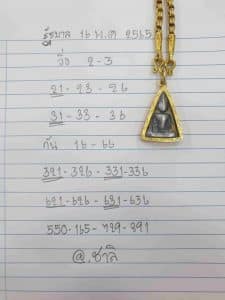 รัฐบาล 16 พ.ค 2565
วิ่ง 2-3
21-23-26
31-33-36
กัน 16-66
321-326-331-336
621-626-631-636
550-165-729-991
@.ชาลี